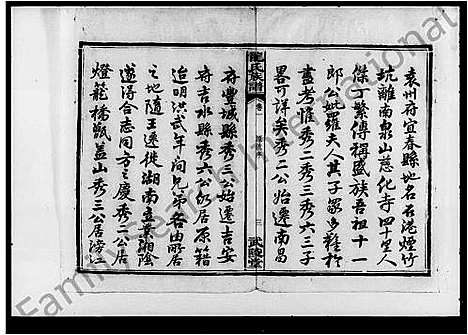 袁州府宜春縣地名石港煙竹
坑離南泉山慈化寺四十里人
傑丁繁傳稱盛族吾祖十一
郎公妣羅夫人其子眾多難於
盡考惟秀二秀三秀六三子
畧可詳矣秀二公始遷南昌
府豐城縣秀三公始遷吉安
府吉水縣秀六公仍居原籍
迨明洪武年間兄弟各由所居
之地隨王遷徙湖南立業湘陰
遂得合志同方之慶秀二公居
燈籠橋甑蓋山秀三公居濠江
龍氏族譜
卷一
三
武陵堂
FamilySearch International